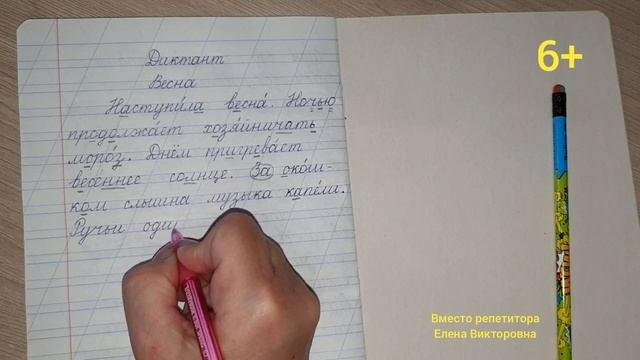 Диктант
Весна
Наступила весна. Ночью
продолжает хозяйничать
мороз. Днём пригревает
весеннее солнце. За окош-
ком слышна музыка капели.
Ручьи оди
6+
Вместо репетитора
Елена Викторовна